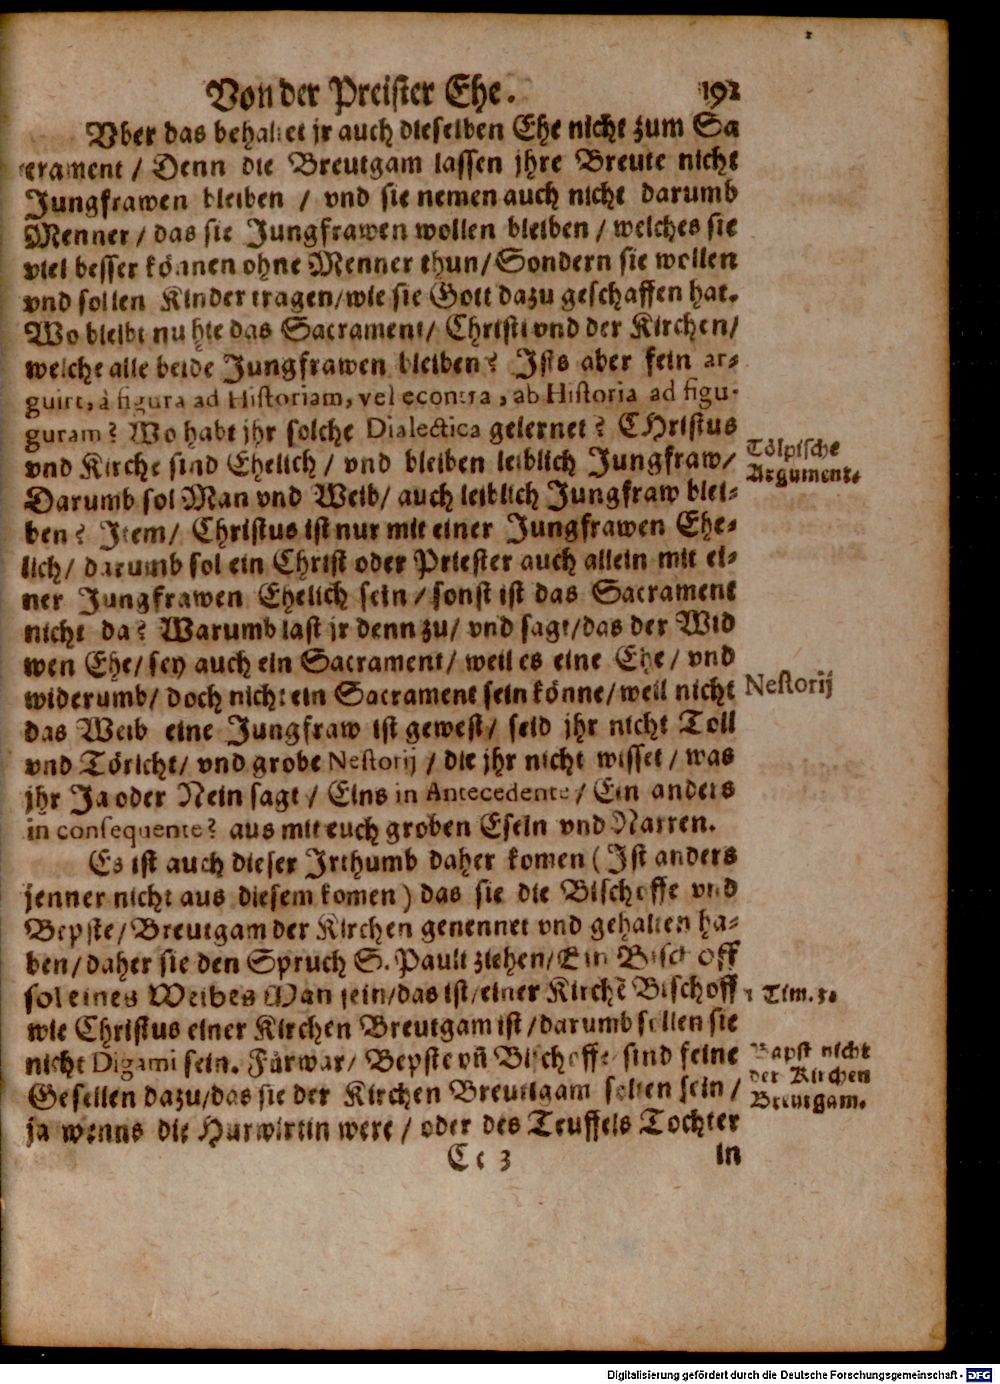 Von der Preister Ehe. 192
Vber das behaltet jr auch dieselben Ehe nicht zum Sa
crament / Denn die Breutgam lassen jhre Breute nicht
Jungfrawen bleiben / vnd sie nemen auch nicht darumb
Menner / das sie Jungfrawen wollen bleiben / welches sie
viel besser können ohne Menner thun / Sondern sie wollen
vnd sollen Kinder tragen / wie sie Gott dazu geschaffen hat.
Wo bleibt nu hie das Sacrament / Christi vnd der Kirchen /
welche alle beide Jungfrawen bleiben? Ists aber fein ar⸗
guirt, à figura ad Historiam, vel econtra, ab Historia ad figu-
guram? Wo habt jhr solche Dialectica gelernet? CHristus
vnd Kirche sind Ehelich / vnd bleiben leiblich Jungfraw /
Darumb sol Man vnd Weib / auch leiblich Jungfraw blei⸗
ben? Item / Christus ist nur mit einer Jungfrawen Ehe⸗
lich / darumb sol ein Christ oder Priester auch allein mit ei⸗
ner Jungfrawen Ehelich sein / sonst ist das Sacrament
nicht da? Warumb last jr denn zu / vnd sagt / das der Wid
wen Ehe / sey auch ein Sacrament / weil es eine Ehe / vnd
widerumb / doch nicht ein Sacrament sein könne / weil nicht
das Weib eine Jungfraw ist gewest / seid jhr nicht Toll
vnd Töricht / vnd grobe Nestorij / die jhr nicht wisset / was
jhr Ja oder Nein sagt / Eins in Antecedente / Ein anders
in consequente? aus mit euch groben Eseln vnd Narren.
Es ist auch dieser Irthumb daher komen (Ist anders
jenner nicht aus diesem komen) das sie die Bischoffe vnd
Bepste / Breutgam der Kirchen genennet vnd gehalten ha⸗
ben / daher sie den Spruch S. Pauli ziehen / Ein Bischoff
sol eines Weibes Man sein / das ist / einer Kirchē Bischoff
wie Christus einer Kirchen Breutgam ist / darumb sollen sie
nicht Digami sein. Fürwar / Bepste vñ Bischoffe sind feine
Gesellen dazu / das sie der Kirchen Breutigam solten sein /
ja wenns die Hurwirtin were / oder des Teuffels Tochter
Cc 3 in
Tölpische
Argument.
Nestorij
1 Tim. 3.
Bapst nicht
der Kirchen
Breutgam.
Digitalisierung gefördert durch die Deutsche Forschungsgemeinschaft - DFG